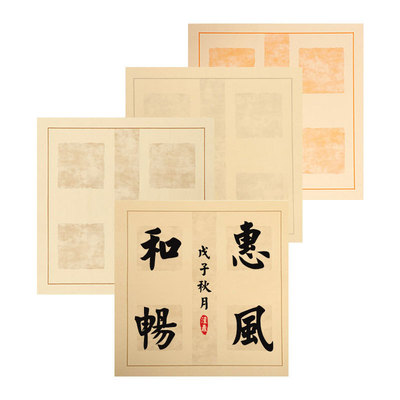 惠風
戊子秋月
和暢